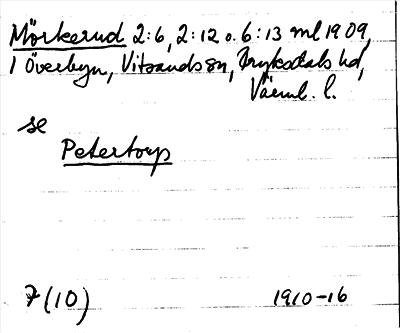 Mörkerud 2:6, 2:12 o. 6:13 ml 1909,
i Överbyn, Vitsands sn, Fryksdals hd,
Värml. l.
se
Petertorp
7 (10)
1910-16